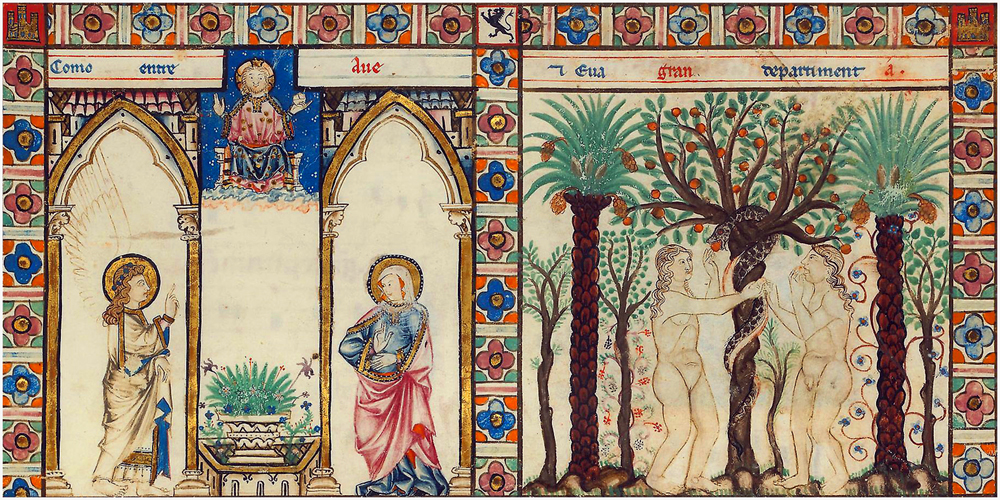 Como entre Aue
⁊ Eua gran departiment a.